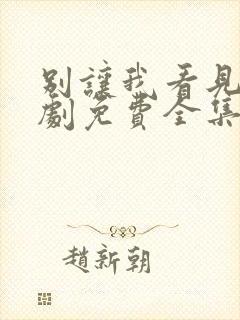 別讓我看見
劇免費全集
趙新朝